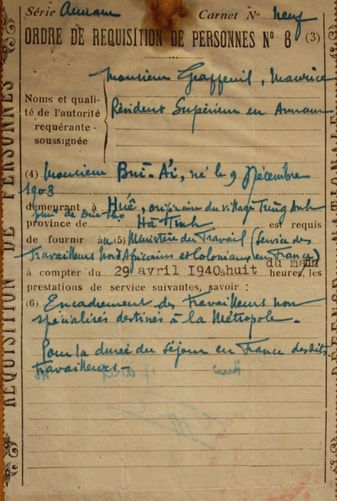 Série Annam Carnet Nº neuf
ORDRE DE REQUISITION DE PERSONNES Nº 6 (3)
Monsieur Graffeuil, Maurice
Noms et quali-
té de l'autorité
requérante
soussignée
Résident Supérieur en Annam
(4) Monsieur Bùi-Ái, né le 9 Décembre
1903
demeurant à Hué, originaire du village Trung Anh
phu de Duc-Tho
province de Hà-Tinh est requis
de fournir au (5) Ministère du Travail (Service des
travailleurs Nord Africains et Coloniaux en France)
à compter du 29 avril 1940 à huit heures, les
du matin
prestations de service suivantes, savoir :
(6) Encadrement des travailleurs non
spécialisés destinés à la Métropole.
Pour la durée du séjour en France desdits
travailleurs.
REQUISITION DE PERSONNES
DÉFENSE NATIONALE